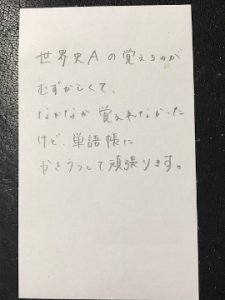 世界史Aの覚えるのが
むずかしくて、
なかなか覚えれなかった
けど、単語帳に
かきうつして頑張ります。